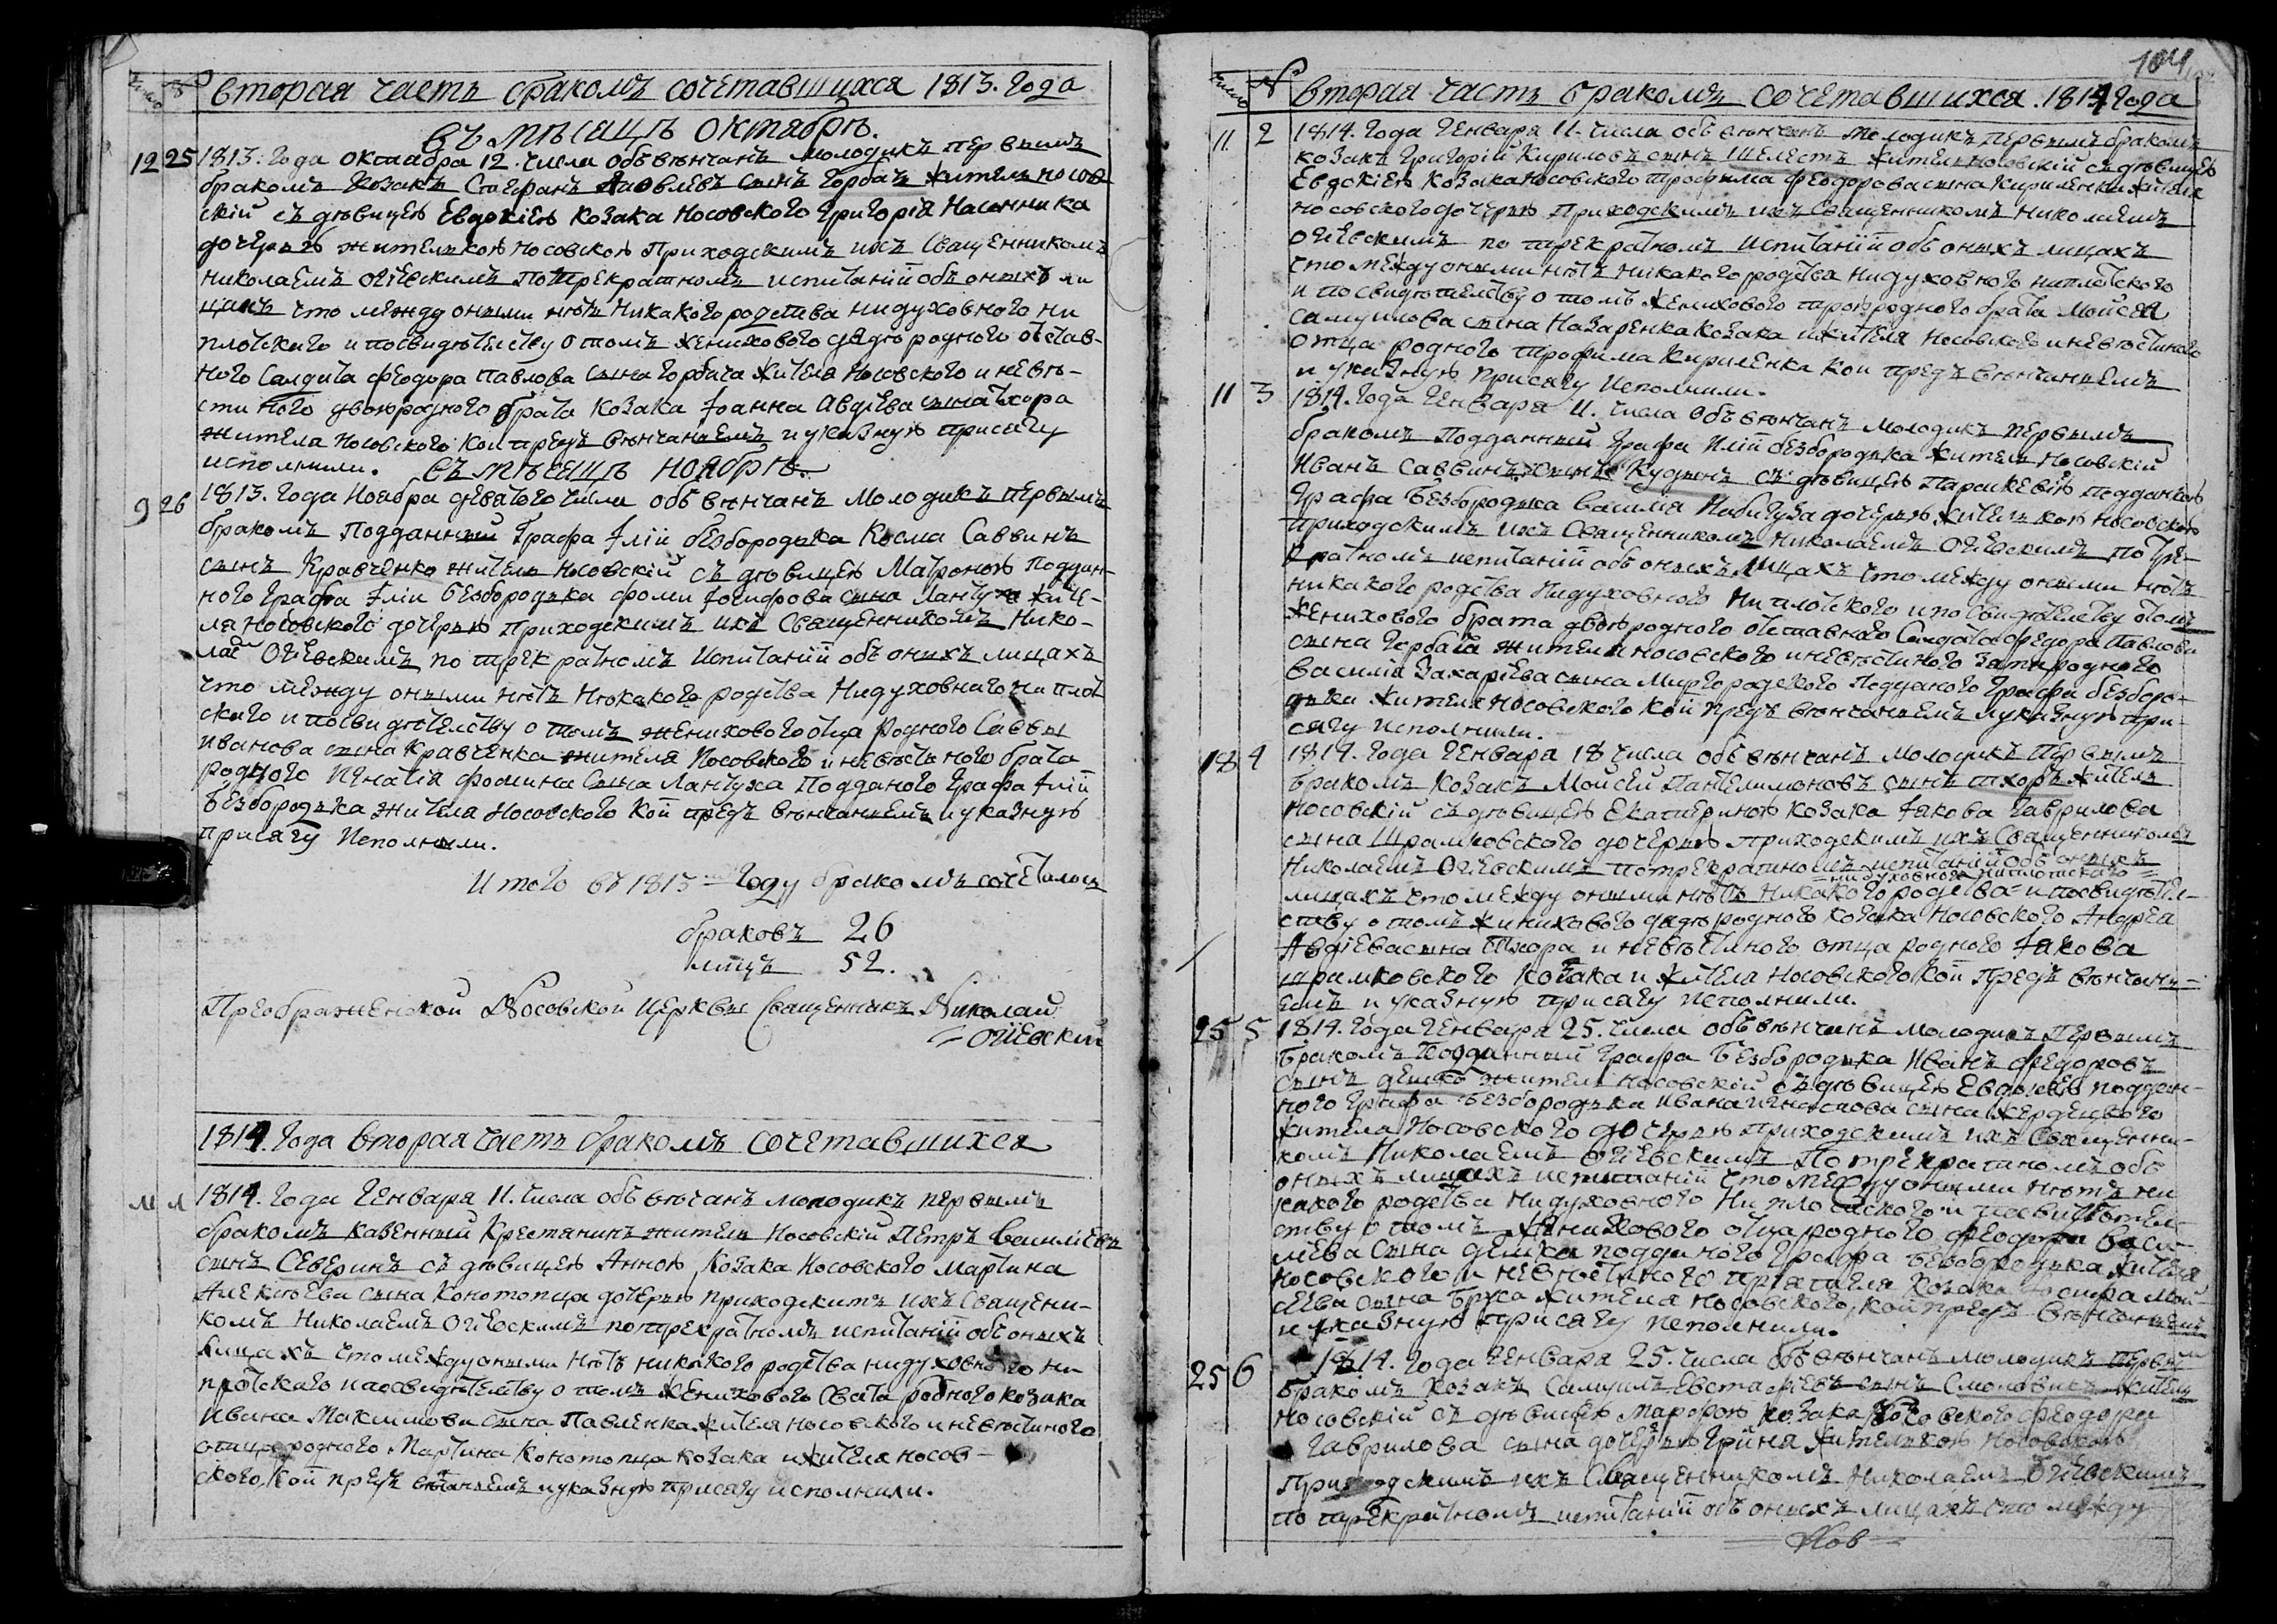 число № вторая часть браком сочетавшихся 1813. года
въ мѣсяцѣ октябрѣ.
12 25 1813: года октабра 12. числа объ вѣнчанъ молодикъ первымъ
бракомъ козакъ Стефанъ Яковлевъ сынъ Горбачъ житель носов
скій съ дѣвицею Евдокіею козака Носовского Григорія
дочерью жителькою Носовскою Приходскимъ ихъ Священникомъ
николаемъ Огіевскимъ По трекратномъ испитаній объ онихъ ли
цахъ что между оними нѣтъ никакого родства нидуховного ни
плотского и посвидѣтелству о томъ женихового дядѣ родного отстав-
ного Салдата Феодора Павлова сына Горбача жителя Носовского и невѣ-
стиного двоюродного брата козака Іоанна Авдіева сына тхора
жителя Носовского кои предъ вѣнчаніемъ и указную присягу
исполнили. въ мѣсяцѣ ноябрѣ
9 26 1813. года Ноября девятого числа объ вѣнчанъ молодикъ первымъ
бракомъ Подданный Графа Іліи безбородька Косма Саввинъ
сынъ Кравченко житель Носовскій съ дѣвицею Матроною Поддан-
ного Графа Іліи безбородька фоми Іосифова сына Лантуха жите-
ля Носовского дочерью Приходскимъ ихъ Священникомъ Нико-
лаем Огіевскимъ по трекратномъ Испитаній объ онихъ лицахъ
что между оними нѣтъ Никакого родства Нидуховного ни плот
ского и посвидѣтелству о томъ женихового отца Родного Саввы
Иванова сына Кравченка жителя Носовского и невѣстиного брата
родного Игнатія фомина Сына Лантуха Подданого Графа Іліи
Безбородька жителя Носовского Кои предъ вѣнчаніемъ и указную
присягу Исполнили.
Итого въ 1813 году бракомъ сочеталось
браковъ 26
лицъ 52.
Преображенской Носовской Церквы Священникъ Николай
Огіевскій
1814. Года вторая часть бракомъ сочетавшихся
11 1 1814. Года Генваря 11. числа объ вѣнчанъ молодикъ первымъ
бракомъ казенный Крестянинъ житель Носовскій Петръ Василіевъ
сынъ Северинъ съ дѣвицею Анною Козака Носовского Мартина
Алексѣева сына Конотопца дочерью приходскимъ ихъ Священи-
комъ Николаемъ Огіевскимъ потрекратномъ испитаній объ онихъ
лицахъ что между оними нѣтъ никакого родства нидуховного ни
плотского и посвидѣтелству о томъ женихового Свата родного козака
Ивана Максимова сына Павленка жителя носовского и невѣстиного
отца родного Мартина Конотопца козака и жителя носов-
ского, кои предъ вѣнчаніемъ и указную присягу исполнили.
104
число № вторая часть бракомъ сочетавшихся. 1814 года
11. 2 1814. Года Генваря 11. числа объ вѣнчанъ молодикъ первымъ бракомъ
козакъ Григорій Кириловъ сынъ Шелестъ житель носовскій съ дѣвицею
Евдокіею Козака Носовского трофима феодорова сына Кириленка жителя
носовского дочерью Приходскимъ ихъ Священникомъ Николаемъ
Огіевскимъ по трекратномъ испитаній объ онихъ лицахъ
что между оними нѣтъ никакого родства нидуховного ниплотского
и посвидѣтелству о томъ женихового троюродного брата Моисея
Самуилова сына Назаренка козака и жителя Носовского и невѣстиного
отца родного трофима Кириленка кои предъ вѣнчаніемъ
и указную присягу Исполнили.
11 3 1814. года Генваря 11. числа объ вѣнчанъ молодикъ первымъ
бракомъ Подданный Графа Иліи безбородька житель Носовскій
Иванъ Саввинъ сынъ Кудинъ съ дѣвицею Параскевіею подданною
Графа Безбородька василія дочерью жителькою носовскою
приходскимъ ихъ Священникомъ Николаемъ Огіевскимъ потре-
кратномъ испитаній объ онихъ лицахъ что между оними нѣтъ
никакого родства Нидуховного Ни плотского и по свидѣтелству о томъ
женихового брата двоюродного отставного Салдата федора Павлова
сына Горбача жителя носовского и невѣстиного зятя родного
василія Захаріева сына Миргородского Подданого Графа безборо-
дька жителя носовского кои предъ вѣнчаніемъ и указную при-
сягу исполнили.
18 4 1814. Года Генваря 18 числа объ вѣнчанъ молодикъ Первымъ
бракомъ Козакъ Моисей Пантелимоновъ сынъ тхоръ житель
Носовскій съ дѣвицею Екатериною козака Іакова Гаврилова
сына Шрамковского дочерью приходскимъ ихъ Священникомъ
Николаемъ Огіевскимъ потрекратномъ испитаній объ онихъ
нидуховного ниплотского
лицахъ что между оними нѣтъ никакого родства и посвидѣтел-
ству о томъ женихового дядѣ родного козака Носовского Андрея
Авдіева сына Тхора и невѣстиного отца родного Іакова
шрамковского Козака и жителя Носовского, кои предъ вѣнчані-
емъ и указную присягу исполнили.
25 5 1814. Года Генваря 25. числа объ вѣнчанъ молодикъ Первымъ
бракомъ Подданный Графа Безбородька Иванъ Федоровъ
сынъ дешко житель Носовскій съ дѣвицею Евдокіею поддан-
ного Графа Безбородька Ивана сына
жителя Носовского дочерью приходскимъ ихъ Священни-
комъ Николаемъ Огіевскимъ По трекратномъ объ
онихъ лицахъ испитаній что между оними нѣтъ ни
какого родства нидуховного Ни плотского и посвидѣтел-
ству о томъ Женихового отца родного феодора Васи-
лева Сына дешка подданого Графа Безбородька жителя
носовского и невѣстиного пріятеля Козака Іосифа Мой-
сеева сына Бруса жителя носовского, кои предъ вѣнчаніемъ
и указную присягу исполнили.
25 6 1814. Года Генваря 25. числа объ вѣнчанъ молодикъ первым
бракомъ козакъ Самуилъ Евстафіевъ сынъ житель
Носовскій съ дѣвицею Марфою козака Носовского феодора
Гаврилова сына дочерью жителькою Носовскою
Приходскимъ ихъ Священникомъ Николаемъ Огіевскимъ
по трекратномъ испитаній объ онихъ лицахъ что между